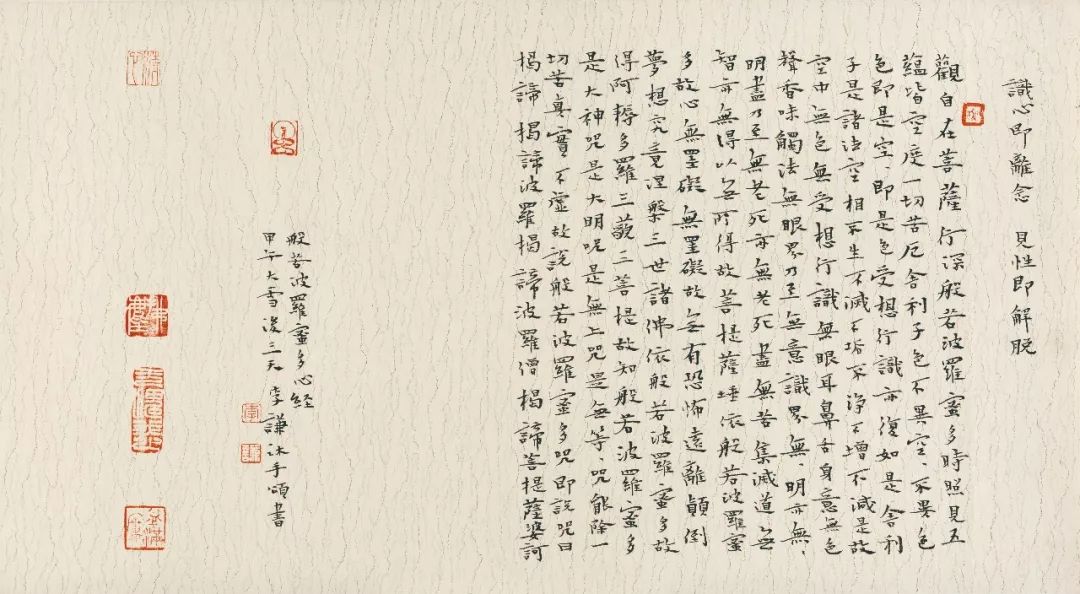 識心即離念 見性即解脫
觀自在菩薩行深般若波羅蜜多時照見五
蘊皆空度一切苦厄舍利子色不異空、不異色
色即是空、即是色受想行識亦復如是舍利
子是諸法空相不生不滅不垢不淨不增不減是故
空中無色無受想行識無眼耳鼻舌身意無色
聲香味觸法無眼界乃至無意識界無、明亦無、
明盡乃至無老死亦無老死盡無苦集滅道無
智亦無得以無所得故菩提薩埵依般若波羅蜜
多故心無罣礙無罣礙故無有恐怖遠離顛倒
夢想究竟涅槃三世諸佛依般若波羅蜜多故
得阿耨多羅三藐三菩提故知般若波羅蜜多
是大神咒是大明咒是無上咒是無等、咒能除一
切苦真實不虛故說般若波羅蜜多咒即說咒曰
揭諦揭諦波羅揭諦波羅僧揭諦菩提薩婆訶
般若波羅蜜多心經
甲午大雪後三天李謙沐手頌書